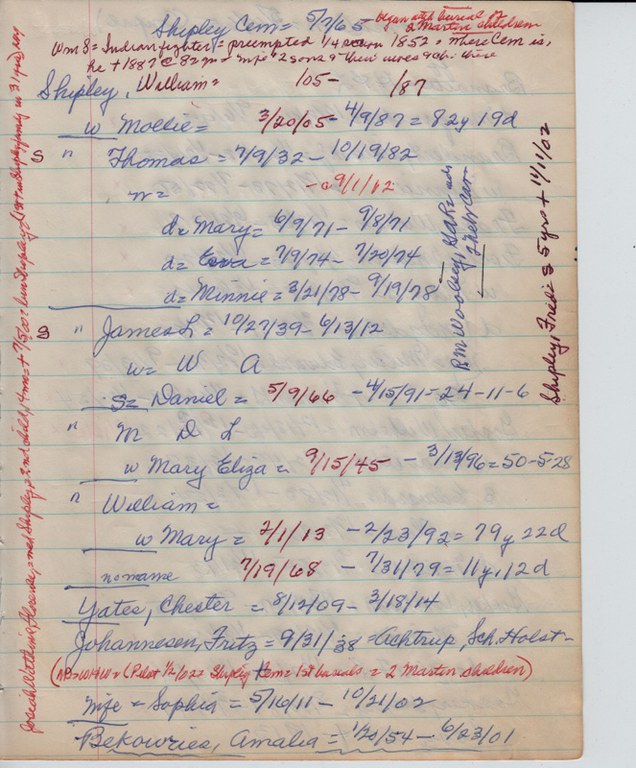 Shipley Cem = 5/7/65 - Began with burial of
2 Masten children
Wm S = Indian fighter) = preempted 1/4 section 1852 - where Cem is,
he + 1887 @ 82 m = wife + 2 sons + their wives + ch. there
Shipley, William = /05 - /87
w Mollie = 3/20/05 - 4/9/87 = 82y 19d
S " Thomas = 7/9/32 - 10/19/82
w = - @ 9/1/12
d = Mary = 6/9/71 - 9/8/71
d = Eva = 7/9/74 - 7/20/74
d = Minnie = 3/21/78 - 9/19/78
S " James L = 10/27/39 - 6/13/12
w = W A
S = Daniel = 5/9/66 - 4/15/91 = 24-11-6
" M D L
w Mary Eliza = 9/15/45 - 3/13/96 = 50-5-28
" William =
w Mary = 2/1/13 - 2/23/92 = 79y 22d
no name 7/19/68 - 7/31/79 = 11y, 12d
Yates, Chester = 8/12/09 - 3/18/14
Johannesen, Fritz = 9/31/38 = Achtrup, Sch. Holst -
(Pilot 1/2/02 = Shipley Cem = 1st burials = 2 Masten children)
wife = Sophia = 5/16/11 - 10/21/02
Bekowries, Amalia = 1/20/54 - 6/23/01
RM Wooley,
Shipley, Fred = S 5 yrs + 11/11/02